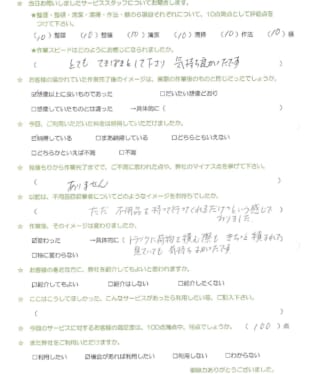 ★ 当日お伺いしましたサービススタッフについてお聞きします。
★整理・整頓・清潔・清掃・作法・躾の6項目それぞれについて、10点満点として評価点を
つけて下さい。
(10)整理 (10)整頓 (10)清潔 (10)清掃 (10)作法 (10)躾
★作業スピードはどのようにお感じになられましたか。
( とても てきぱきして下さり 気持ち良かったです )
★ お客様の描かれていた作業完了後のイメージは、実際の作業後のものと同じだったでしょうか。
☑想像以上に良いものであった □だいたい想像どおり
□想像していたものとは違った →具体的に( )
★ 今回、ご利用いただいた料金は納得していただけましたか。
☑納得している □まあ納得している □どちらともいえない
□どちらかといえば不満 □不満
★ 見積もりから作業完了までで、ご不満に思われた点や、弊社のマイナス点を挙げて下さい。
( ありません )
★ 以前は、不用品回収業者についてどのようなイメージをお持ちでしたか。
( ただ 不用品を持って行ってくれるだけという感じで
ありました )
★ 作業後、そのイメージは変わりましたか。
☑変わった →具体的に(トラックに荷物を積む際も きちっと積まれ
見ていても 気持ちよかったです
□特に変わらない
★ お客様の身近な方に、弊社を紹介してもよいと思われますか。
☑紹介してもよい □紹介はしない □紹介したくない
★ ここはこうしてほしかった、こんなサービスがあったら利用したい等、ご記入下さい。
( )
★ 今回のサービスに対するお客様の満足度は、100点満点中、何点でしょうか。 (100)点
★ また弊社をご利用いただけますか。
□利用したい ☑機会があれば利用したい □利用しない □わからない
御協力ありがとうございました。